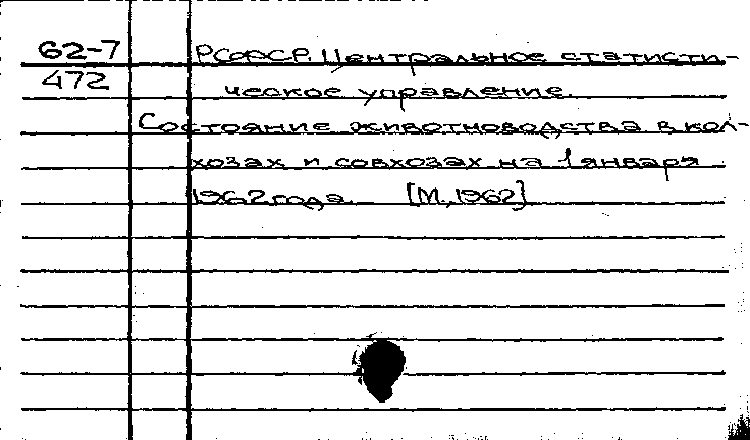 62-7 РСФСР. Центральное статисти-
472 ческое управление.
Состояние животноводства в кол-
хозах и совхозах на 1 января
1962 года. [М., 1962]